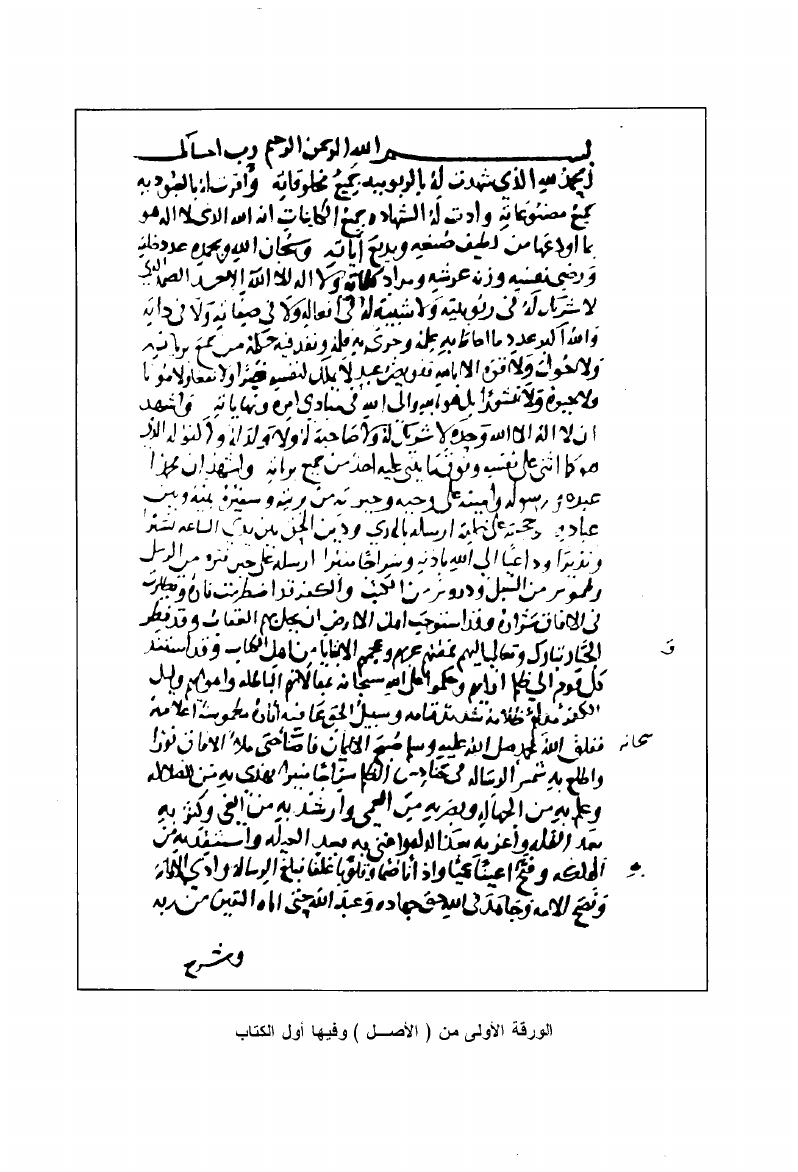 بسم الله الرحمن الرحيم رب
الحمد لله الذي شهدت له بالربوبيه جميع مخلوقاته واقرت له بالعبوديه
جميع مصنوعاته وادت له الشهاده جميع الكاينات انه الله الذي لا اله هو
بما اودعها من لطيف صنعه وبديع آياته وسبحان الله وبحمده عدد خلقه
ورضى نفسه وزنة عرشه ومداد كلماته ولا اله الا الله الاحد الصمد الذي
لا شريك له في ربوبيته ولا شبيه له في افعاله ولا في صفاته ولا في ذاته
والله اكبر عدد ما احاط به علمه وجرى به قلمه ونفذ فيه حكمه من جميع برياته
ولا حول ولا قوة الا بالله تفويض عبد لا يملك لنفسه ضرا ولا نفعا ولا موتا
ولا حيوة ولا نشورا بل هو بالله والى الله في مبادي امره ونهاياته واشهد
ان لا اله الا الله وحده لا شريك له ولا صاحبة له ولا ولد له ولا كفو له الذي
هو كما اثنى على نفسه وفوق ما يثني عليه احد من جميع برياته واشهد ان محمدا
عبده ورسوله وامينه على وحيه وخيرته من بريته وسفيره بينه وبين
عباده وحجته على خلقه ارسله بالهدى ودين الحق بين يدي الساعه بشيرا
ونذيرا وداعيا الى الله باذنه وسراجا منيرا ارسله على حين فترة من الرسل
وطموس من السبل ودروس من الكتب والكفر قد اضطرمت ناره وتطايرت
في الافاق شراره وقد استوجب اهل الارض ان يحل بهم العقاب وقد نظر
الجبار تبارك وتعالى اليهم فمقتهم عربهم وعجمهم الا بقايا من اهل الكتاب وقد استند
كل قوم الى ظلم اراءهم وحكموا على الله سبحانه بمقالاتهم الباطله واهوائهم وليل
الكفر مدلهم ظلامه شديد قتامه وسبيل الحق عافيه آثاره مطموسة اعلامه
ففلق الله بمحمد صلى الله عليه وسلم صبح الايمان فاضاء حتى ملأ الافاق نورا
واطلع به شمس الرساله في حنادس الظلم سراجا منيرا فهدى به من الضلاله
وعلم به من الجهاله وبصر به من العمى وارشد به من الغي وكثر به
بعد القله واعز به بعد الذله واغنى به بعد العيله واستنقذ به من
الهلكه وفتح به اعينا عميا واذانا صما وقلوبا غلفا فبلغ الرساله وادى الامانه
ونصح الامه وجاهد في الله حق جهاده وعبد الله حتى اتاه اليقين من ربه
وشرح
سبحانه
به
الورقة الأولى من ( الأصـــل ) وفيها أول الكتاب